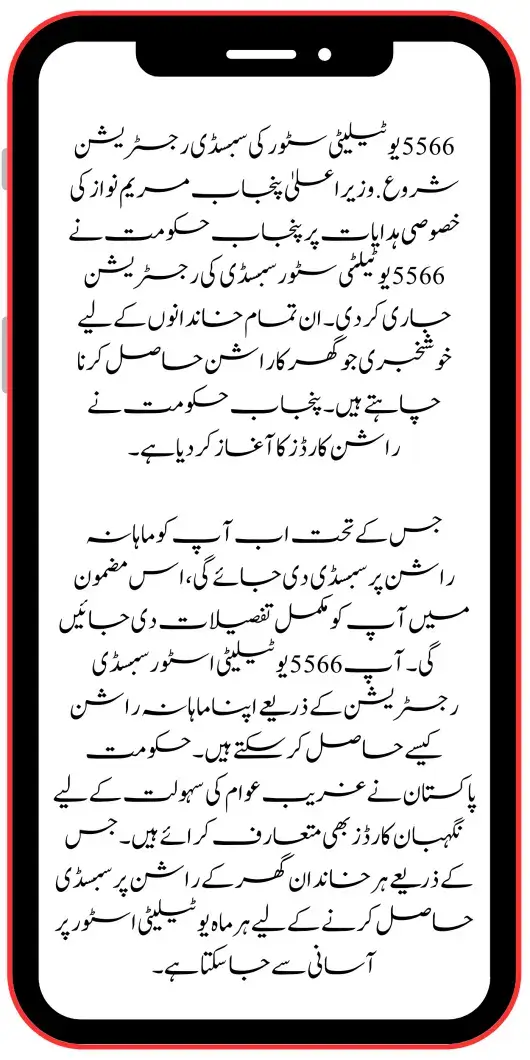 5566 یوٹیلیٹی سٹور کی سبسڈی رجسٹریشن
شروع. وزیر اعلیٰ پنجاب مریم نواز کی
خصوصی ہدایات پر پنجاب حکومت نے
5566 یوٹیلٹی سٹور سبسڈی کی رجسٹریشن
جاری کر دی۔ ان تمام خاندانوں کے لیے
خوشخبری جو گھر کا راشن حاصل کرنا
چاہتے ہیں۔ پنجاب حکومت نے
راشن کارڈز کا آغاز کر دیا ہے۔
جس کے تحت اب آپ کو ماہانہ
راشن پر سبسڈی دی جائے گی، اس مضمون
میں آپ کو مکمل تفصیلات دی جائیں
گی۔ آپ 5566 یوٹیلیٹی اسٹور سبسڈی
رجسٹریشن کے ذریعے اپنا ماہانہ راشن
کیسے حاصل کر سکتے ہیں۔ حکومت
پاکستان نے غریب عوام کی سہولت کے لیے
نگہبان کارڈز بھی متعارف کرائے ہیں۔ جس
کے ذریعے ہر خاندان گھر کے راشن پر سبسڈی
حاصل کرنے کے لیے ہر ماہ یوٹیلیٹی اسٹور پر
آسانی سے جا سکتا ہے۔